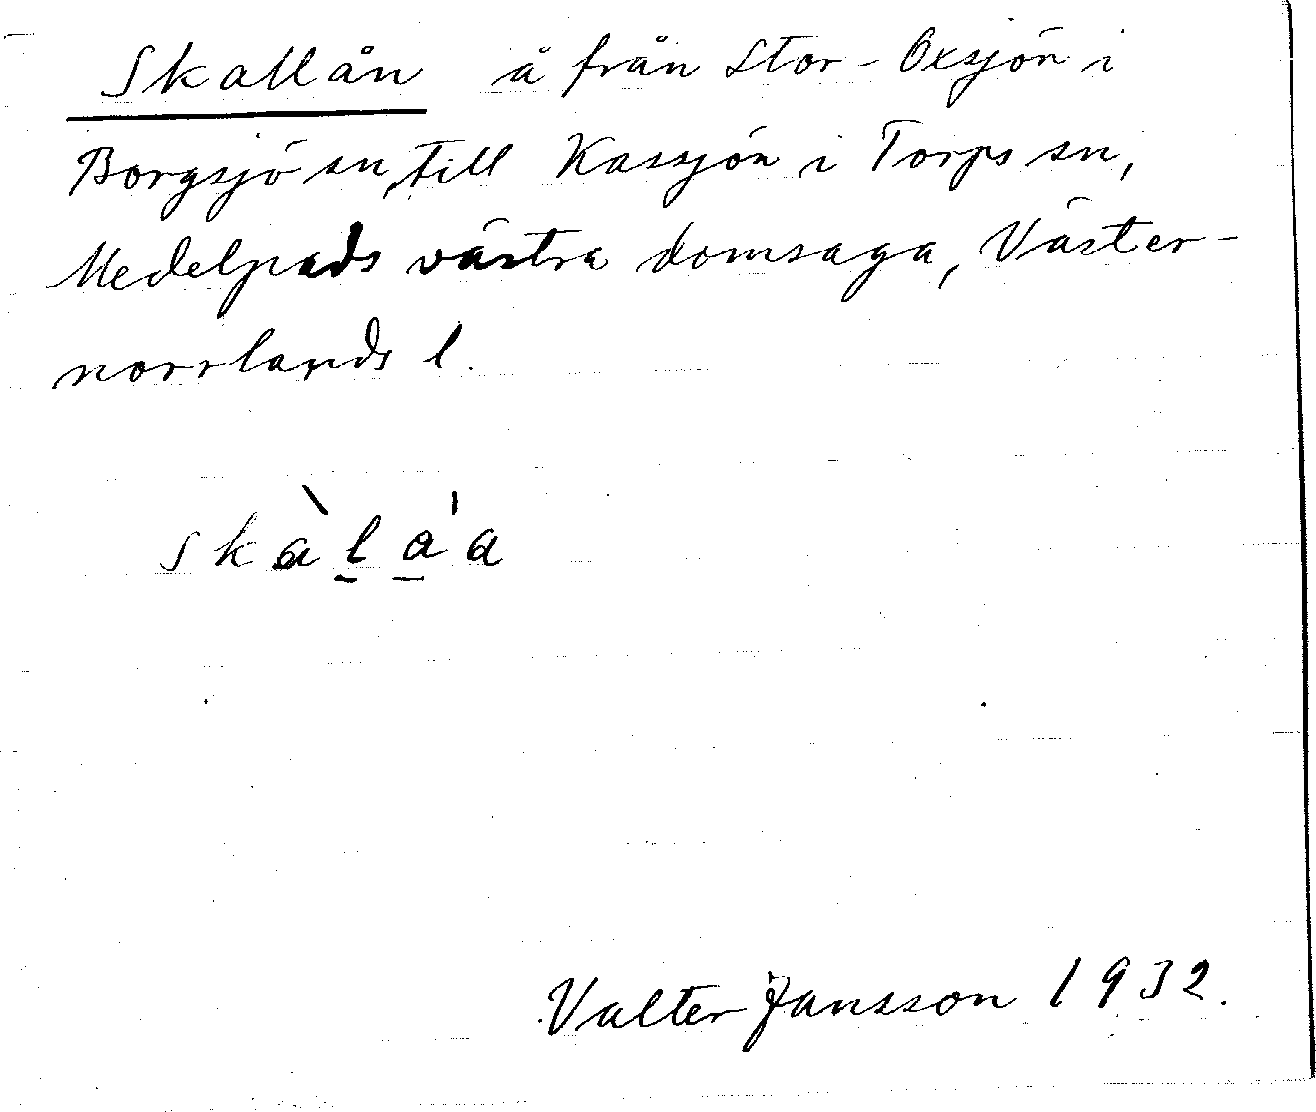 Skallån å från Stor-Oxsjön i
Borgsjö sn, till Kassjön i Torps sn,
Medelpads västra domsaga, Väster-
norrlands l.
skàla'a
Valter Jansson 1932.